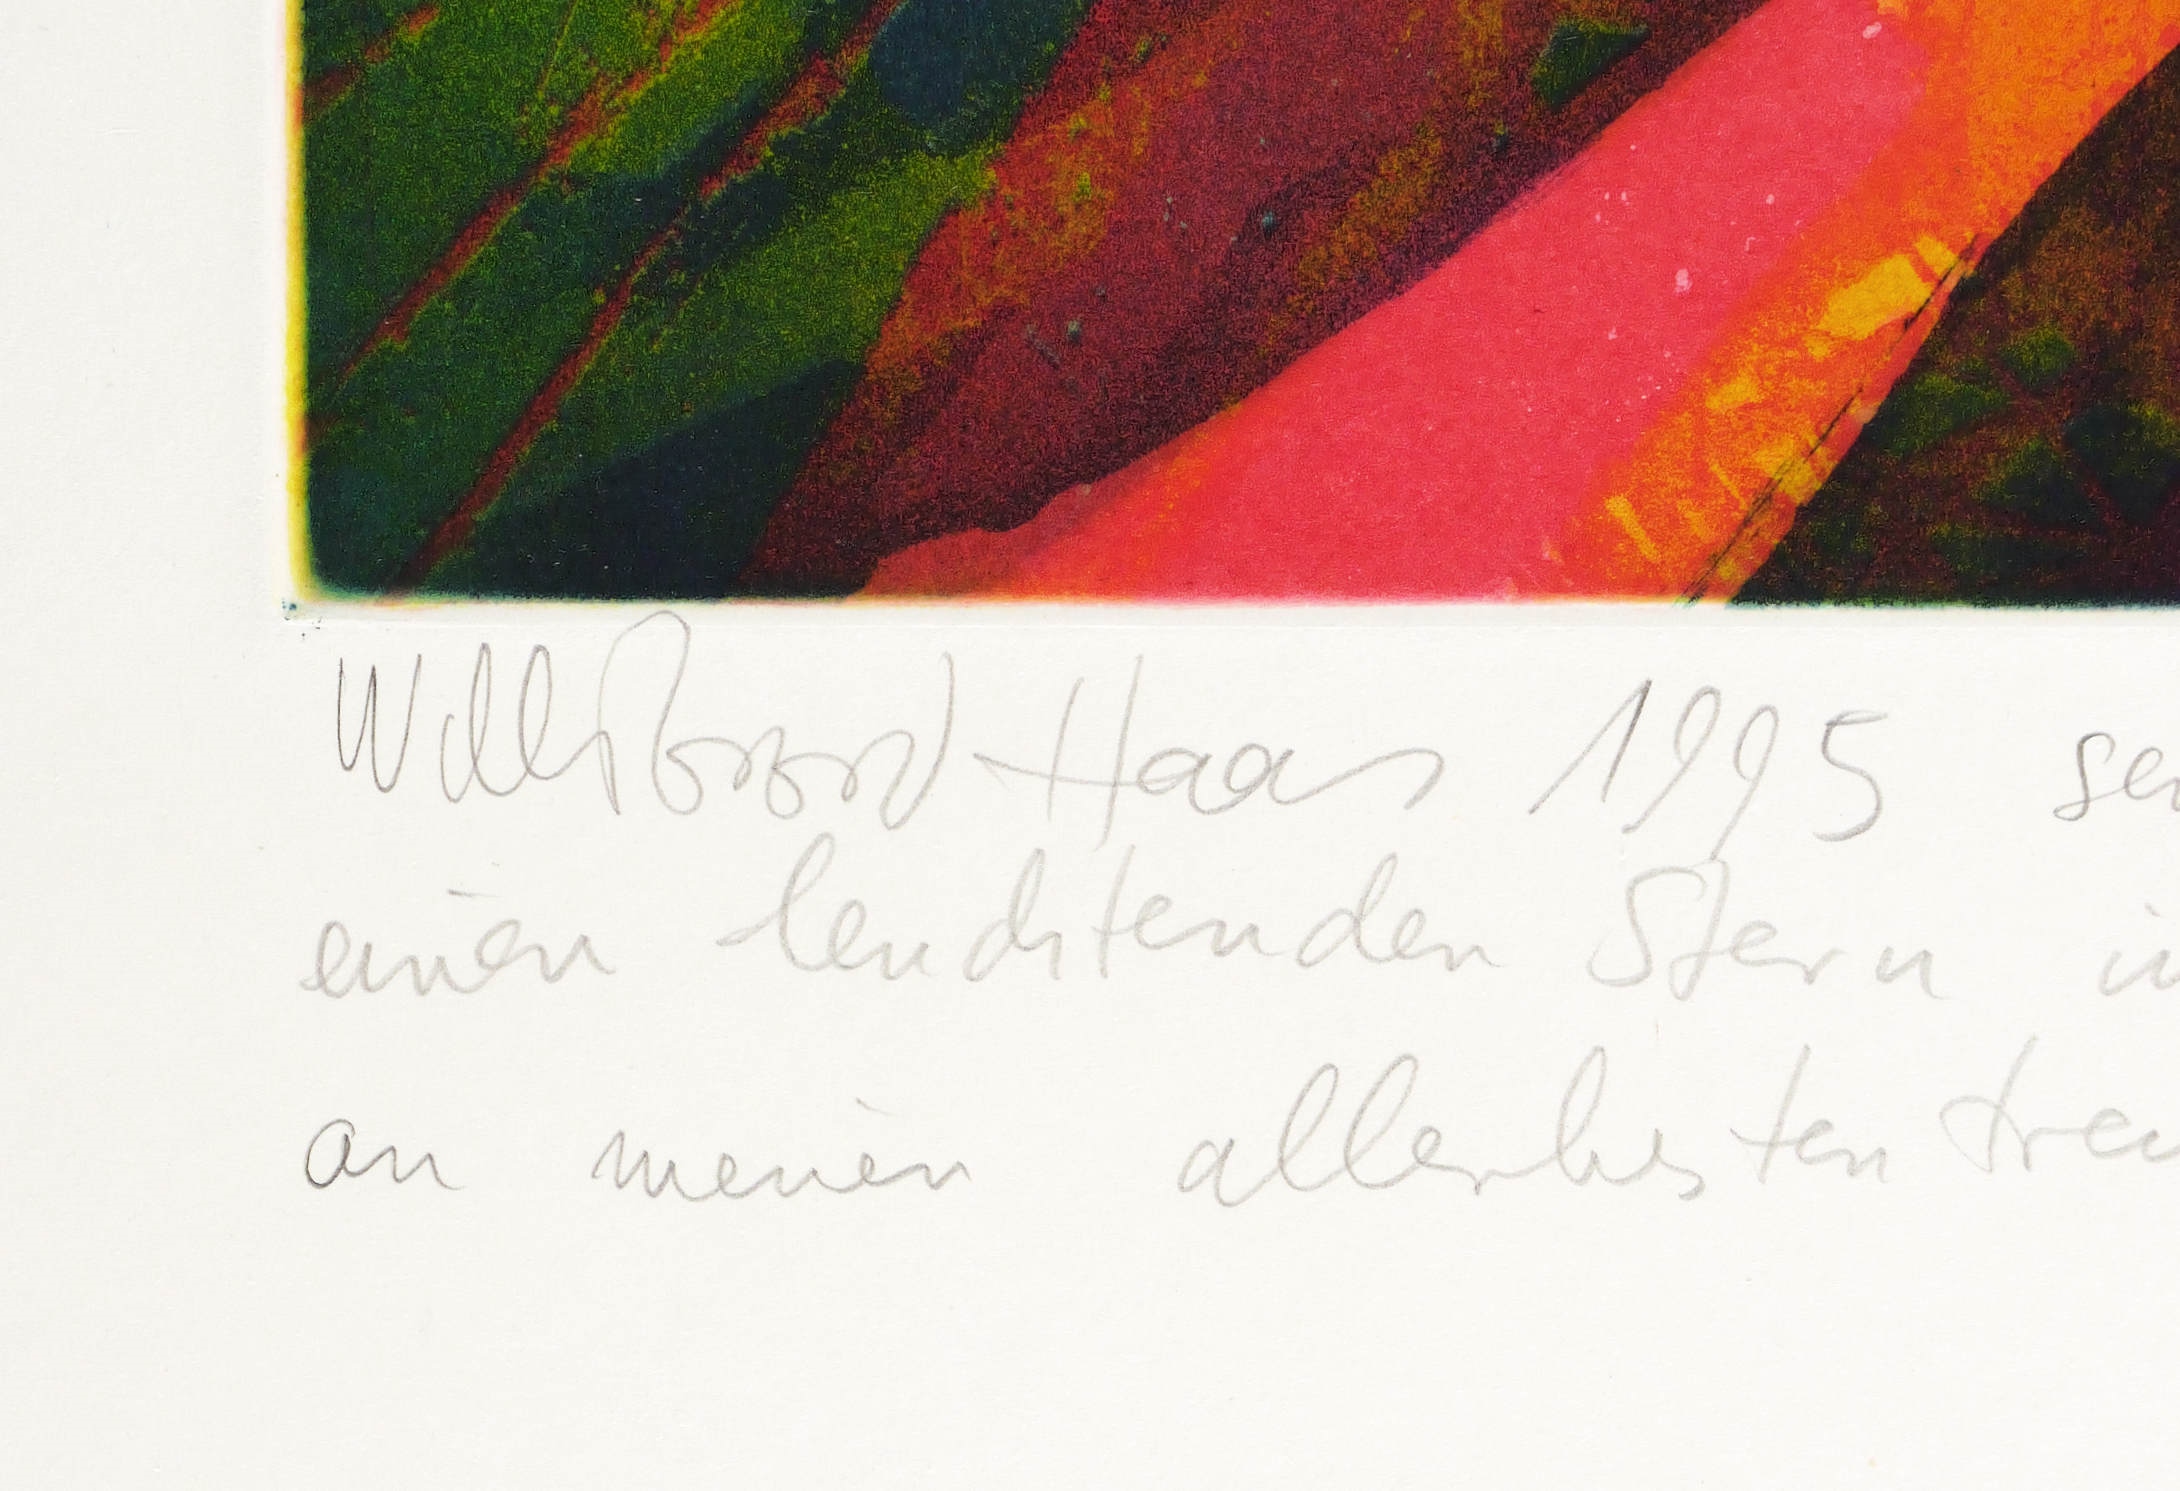 Willibrord Haas 1995 sen
einen leuchtenden Stern i
an meinen allerbesten Freu